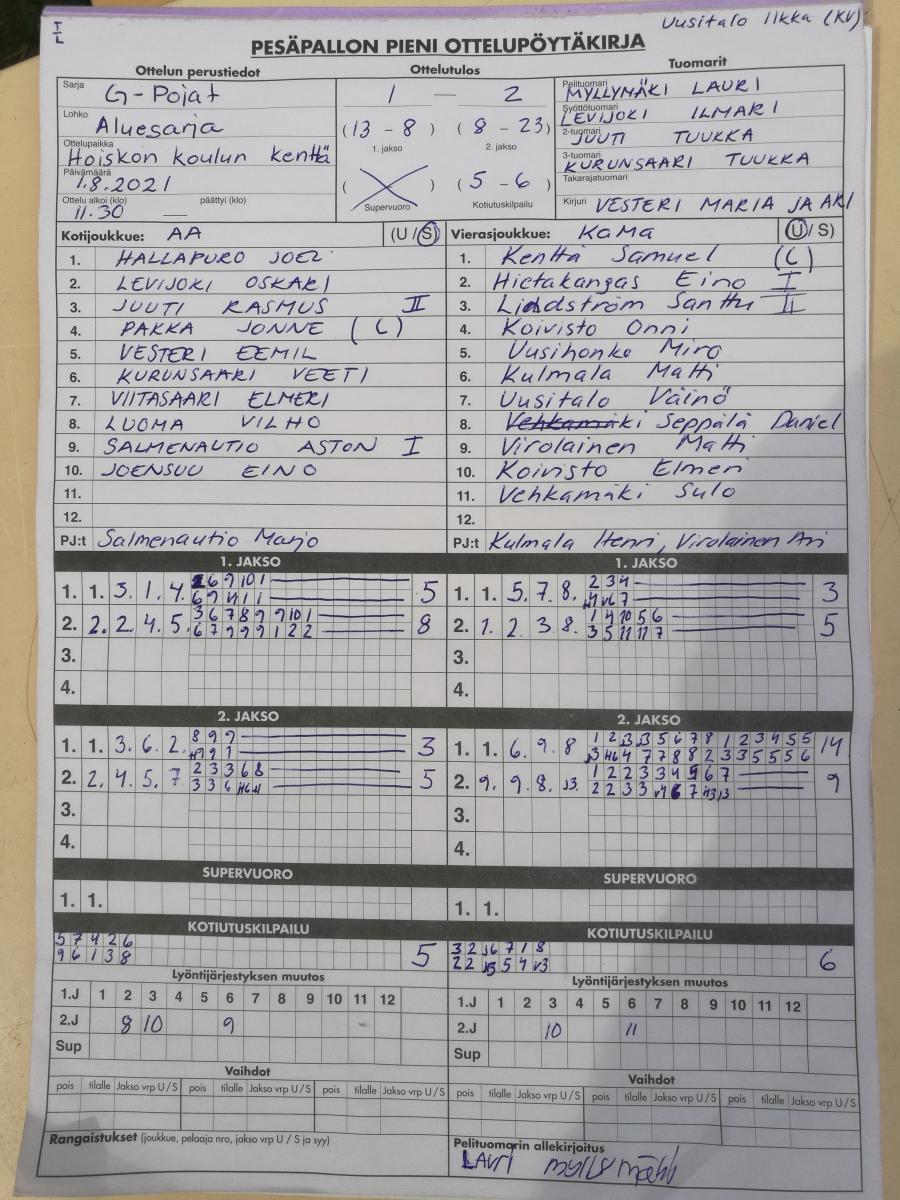 I
L
Uusitalo Ilkka (KV)
PESÄPALLON PIENI OTTELUPÖYTÄKIRJA
Ottelun perustiedot
Sarja
G-Pojat
Lohko
Aluesarja
Ottelupaikka
Hoiskon koulun kenttä
Päivämäärä
1.8.2021
Ottelu alkoi (klo) päättyi (klo)
11.30 —
Ottelutulos
1 — 2
(13 - 8) (8 - 23)
1. jakso 2. jakso
( ) (5 - 6)
Supervuoro Kotiutuskilpailu
Tuomarit
Pelituomari
MYLLYMÄKI LAURI
Syöttötuomari
LEVIJOKI ILMARI
2-tuomari
JUUTI TUUKKA
3-tuomari
KURUNSAARI TUUKKA
Takarajatuomari
Kirjuri VESTERI MARIA JA ARI
Kotijoukkue: AA (U / S)
1. HALLAPURO JOEL
2. LEVIJOKI OSKARI
3. JUUTI RASMUS II
4. PAKKA JONNE (C)
5. VESTERI EEMIL
6. KURUNSAARI VEETI
7. VIITASAARI ELMERI
8. LUOMA VILHO
9. SALMENAUTIO ASTON I
10. JOENSUU EINO
11.
12.
PJ:t Salmenautio Marjo
Vierasjoukkue: KaMa (U / S)
1. Kenttä Samuel (C)
2. Hietakangas Eino I
3. Lindström Santtu II
4. Koivisto Onni
5. Uusihonko Miro
6. Kulmala Matti
7. Uusitalo Väinö
8. Vehkamäki Seppälä Daniel
9. Virolainen Matti
10. Koivisto Elmeri
11. Vehkamäki Sulo
12.
PJ:t Kulmala Henri, Virolainen Ari
1. JAKSO
1. 1. 3. 1. 4. 5
2. 2. 2. 4. 5. 3 6 7 8 9 9 10 1 8
6 7 9 9 9 1 2 2
3.
4.
1. JAKSO
1. 1. 5. 7. 8. 2 3 4 3
2. 1. 2. 3. 8. 1 4 10 5 6 5
3 5 11 11 7
3.
4.
2. JAKSO
1. 1. 3. 6. 2. 8 9 9 3
2. 2. 4. 5. 7 2 3 3 6 8 5
3 3 6
3.
4.
2. JAKSO
1. 1. 6. 9. 8 14
2. 9. 9. 8. 9
3.
4.
SUPERVUORO
1. 1.
SUPERVUORO
1. 1.
KOTIUTUSKILPAILU
5 7 4 2 6
9 6 1 3 8 5
KOTIUTUSKILPAILU
6
Lyöntijärjestyksen muutos
1.J 1 2 3 4 5 6 7 8 9 10 11 12
2.J 8 10 9
Sup
Lyöntijärjestyksen muutos
1.J 1 2 3 4 5 6 7 8 9 10 11 12
2.J 10 11
Sup
Vaihdot
pois tilalle Jakso vrp U / S pois tilalle Jakso vrp U / S pois tilalle Jakso vrp U / S
Vaihdot
pois tilalle Jakso vrp U / S pois tilalle Jakso vrp U / S pois tilalle Jakso vrp U / S
Rangaistukset (joukkue, pelaaja nro, jakso vrp U / S ja syy)
Pelituomarin allekirjoitus
LAURI myllymäki